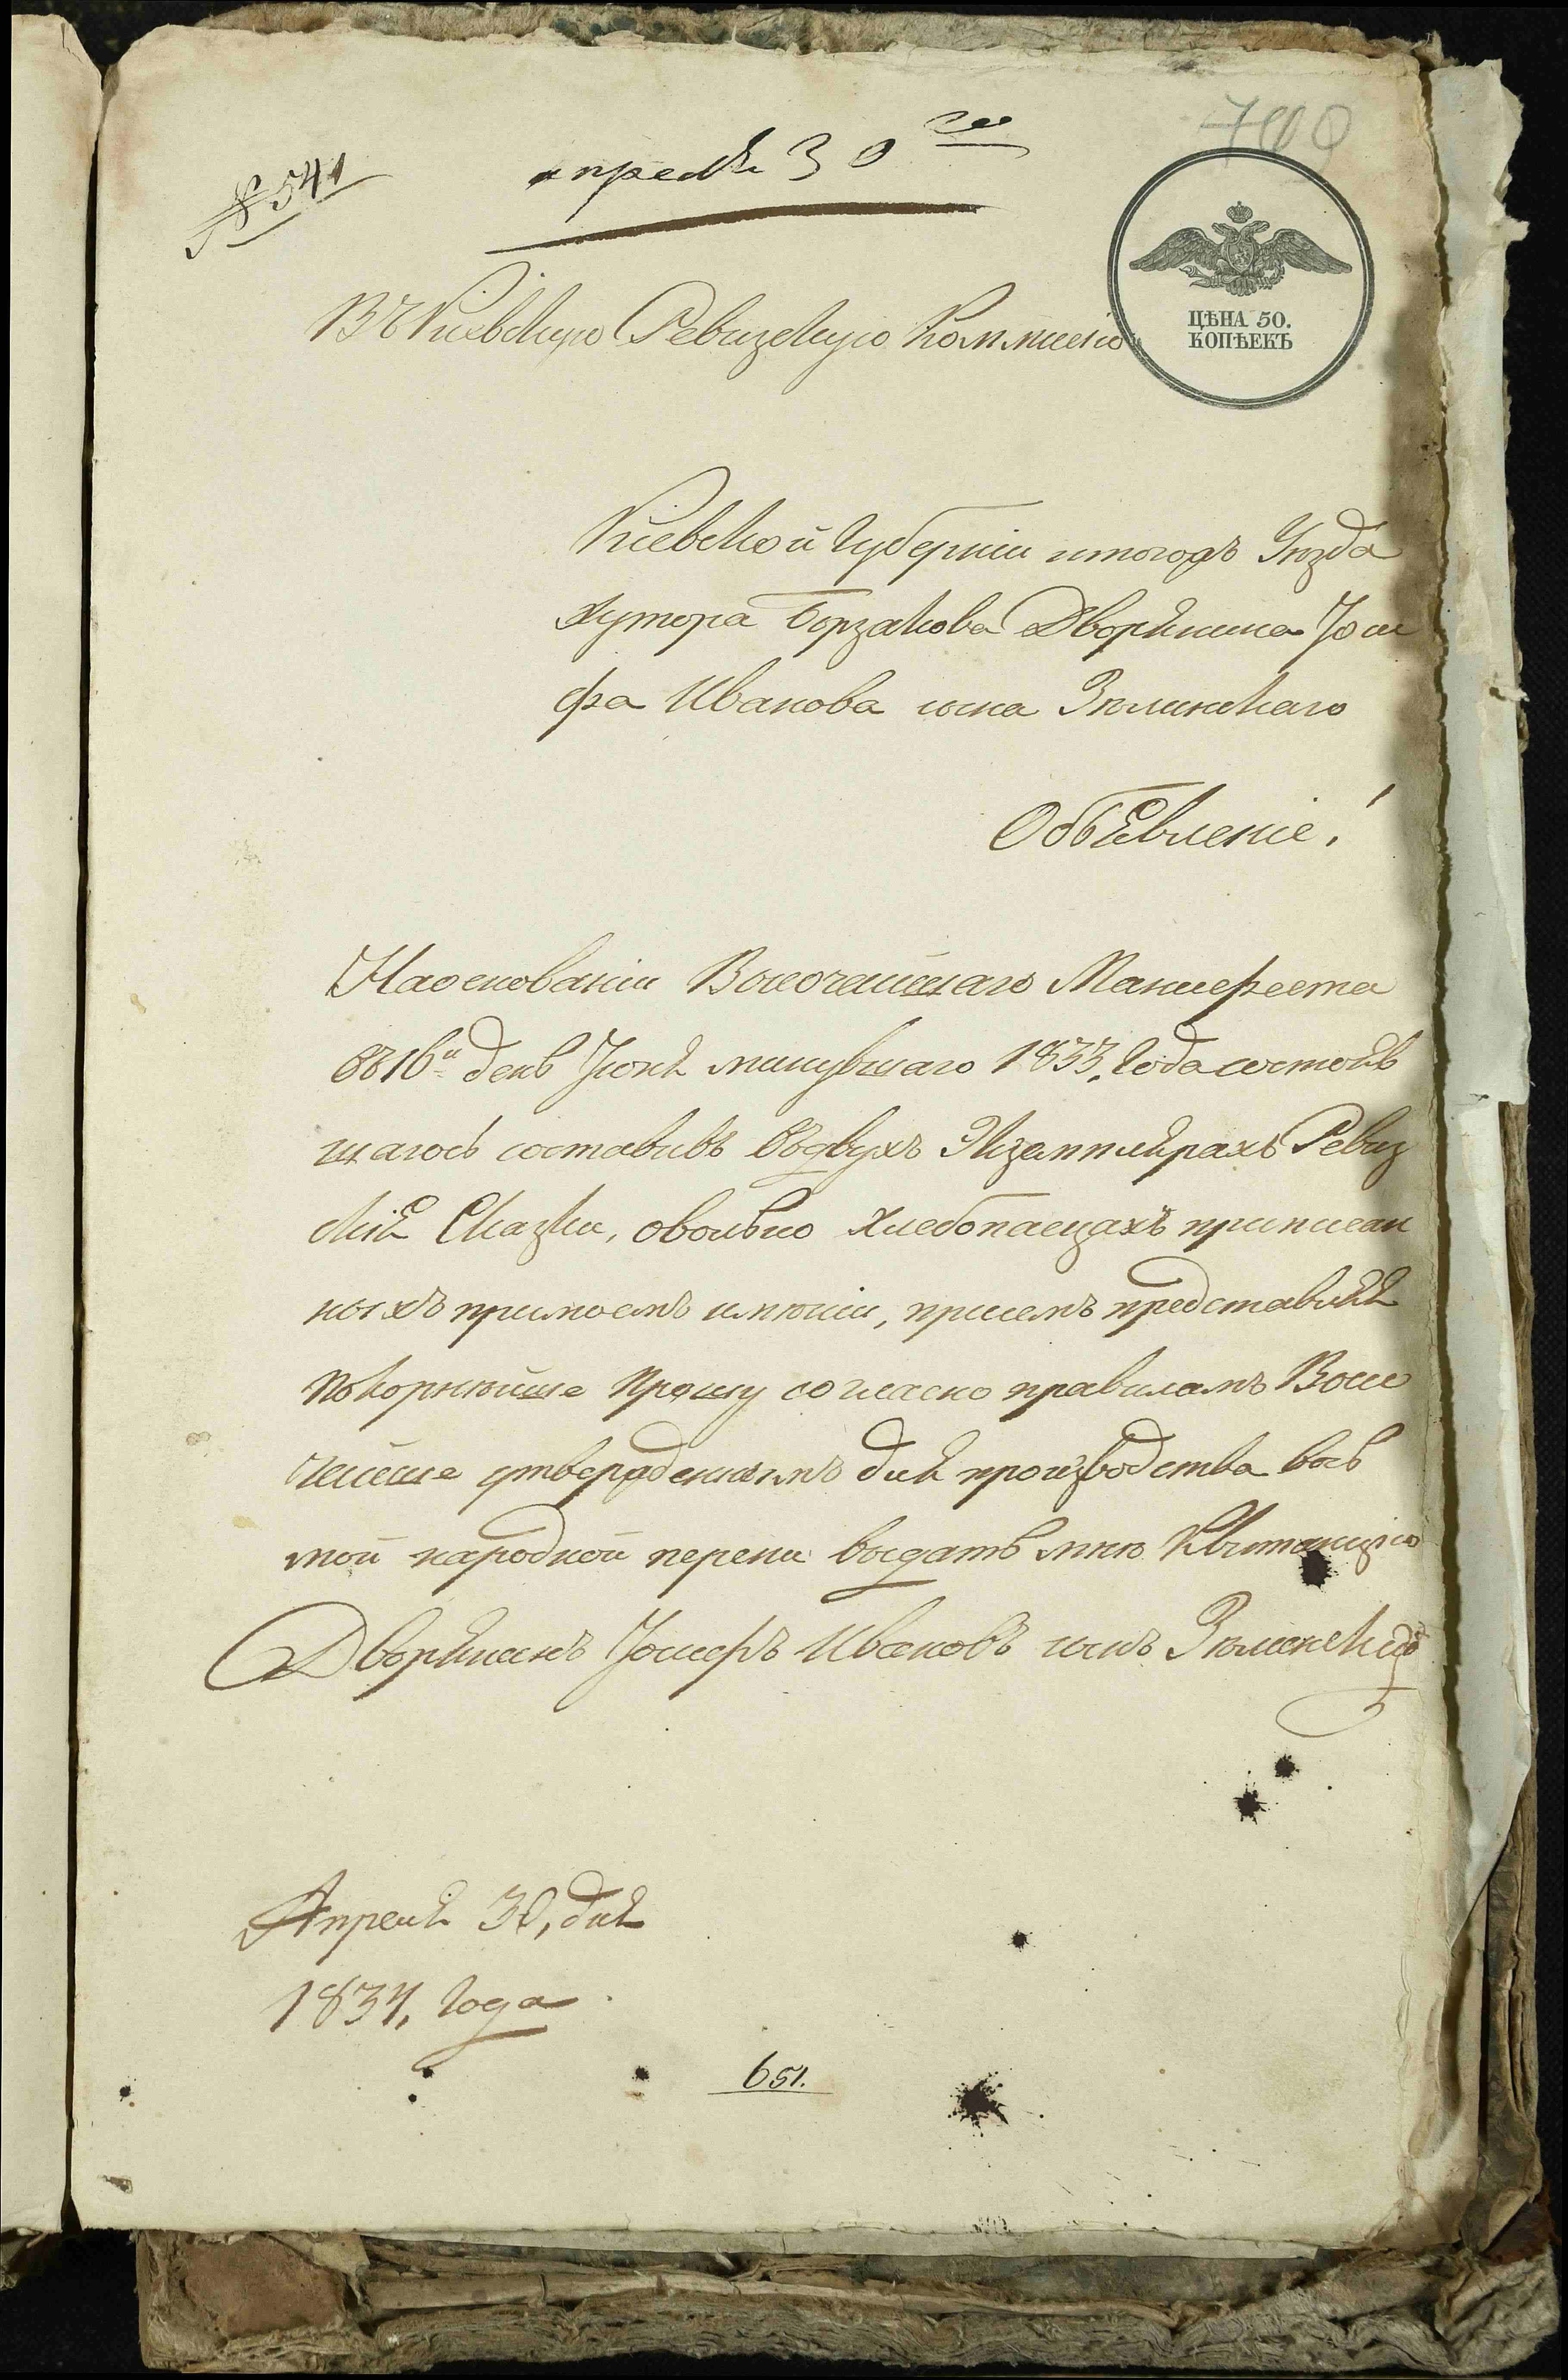 № 541
апреля 30го
700
ЦѢНА 50.
КОПѢЕКЪ
Въ Кіевскую Ревизскую Коммисію
Кіевской Губерніи итогожъ Уѣзда
хутора Борзакова Дворянина Іоси
фа Иванова сына Зѣлинскаго
Объявленіе!
Наоснованіи Высочайшаго Манифеста
въ 16й день Іюня минувшаго 1833, Года состояв
шагось составивъ въдвухъ Экземплярахъ Ревиз
скія Сказки, овольно хлебопаецахъ приписан
ныхъ примоемъ имѣніи, присемъ представляя
покорнѣйше прошу согласно правиламъ Высо
чайше утвержденнымъ для производства вось
мой народной перепи выдать мнѣ Квитанцію
Дворянинъ Іосифъ Ивановъ сынъ Зѣлинскій
Апреля 30, дня
1834, Года
651.